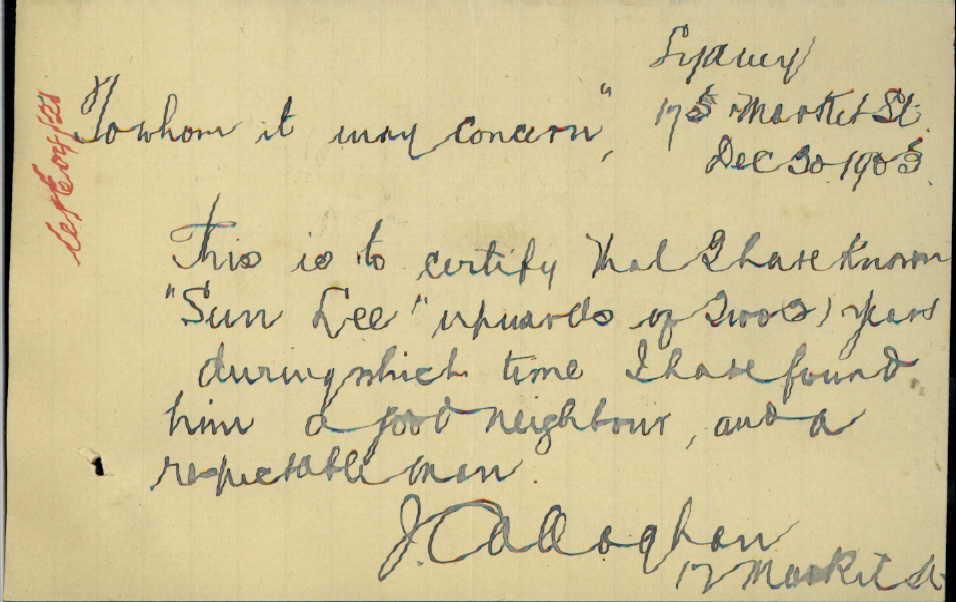 Sydney
"To whom it may concern",
175 Market St.
Dec 30 1903
This is to certify that I have known
"Sun Lee" upwards of Two (2) years
during which time I have found
him a good neighbour, and a
respectable man.
J. O'Callaghan
Market St